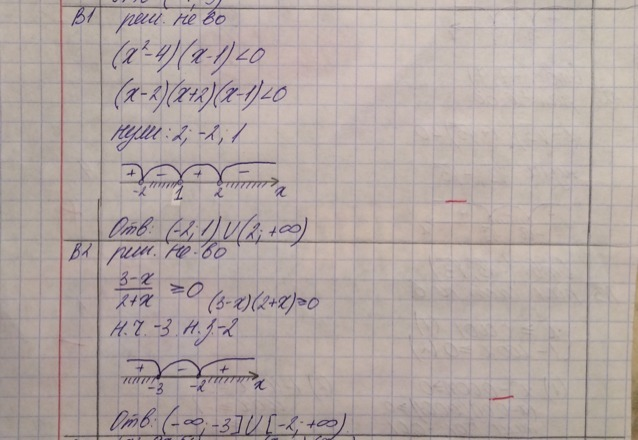 В1 реш. не-во
(x²-4)(x-1)<0
(x-2)(x+2)(x-1)<0
нули: 2; -2; 1
+ - + -
-2 1 2 x
Отв: (-2; 1) U (2; +∞)
В2 реш. не-во
3-x
2+x ≥0 (3-x)(2+x)≥0
н.ч. -3 н.з -2
+ - +
-3 -2 x
Отв: (-∞; -3] U [-2; +∞)